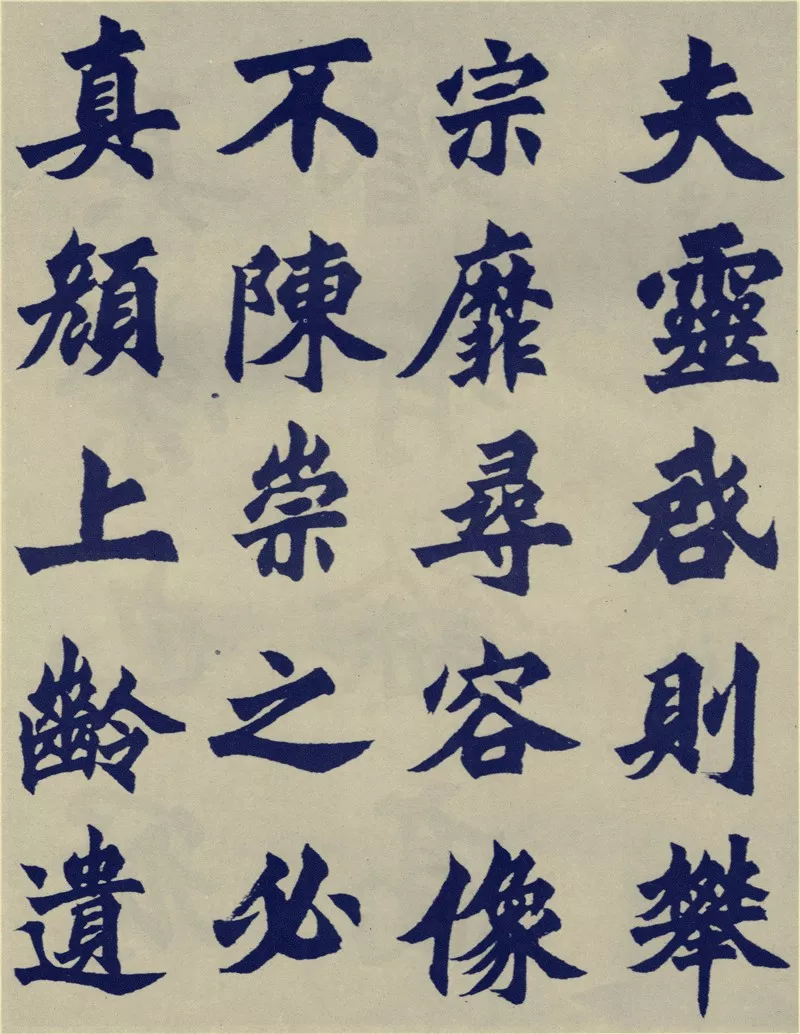 夫靈啓則攀
宗靡尋容像
不陳崇之必
真顏上齡遺